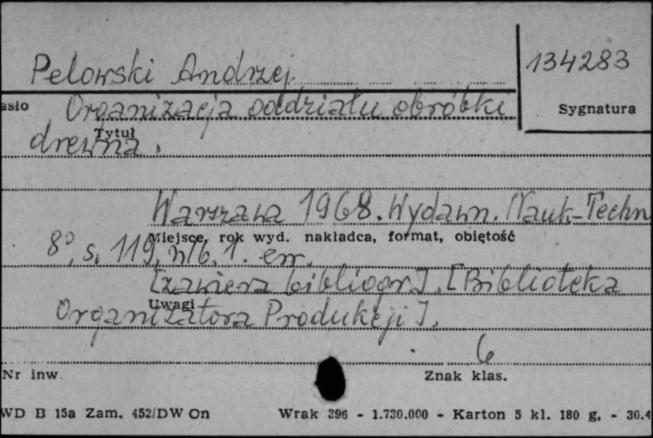 Pelowski Andrzej
134283
asło
Organizacja oddziału obróbki
Sygnatura
Tytuł
drewna.
Warszawa 1968. Wydawn. Nauk-Techn
Miejsce, rok wyd. nakładca, format, objętość
8°, s. 119, nlb. 1. err.
[zawiera bibliogr.]. [Biblioteka
Uwagi
Organizatora Produkcji].
6
Nr inw.
Znak klas.
WD B 15a Zam. 452/DW On Wrak 296 - 1.730.000 - Karton 5 kl. 180 g. - 30.4